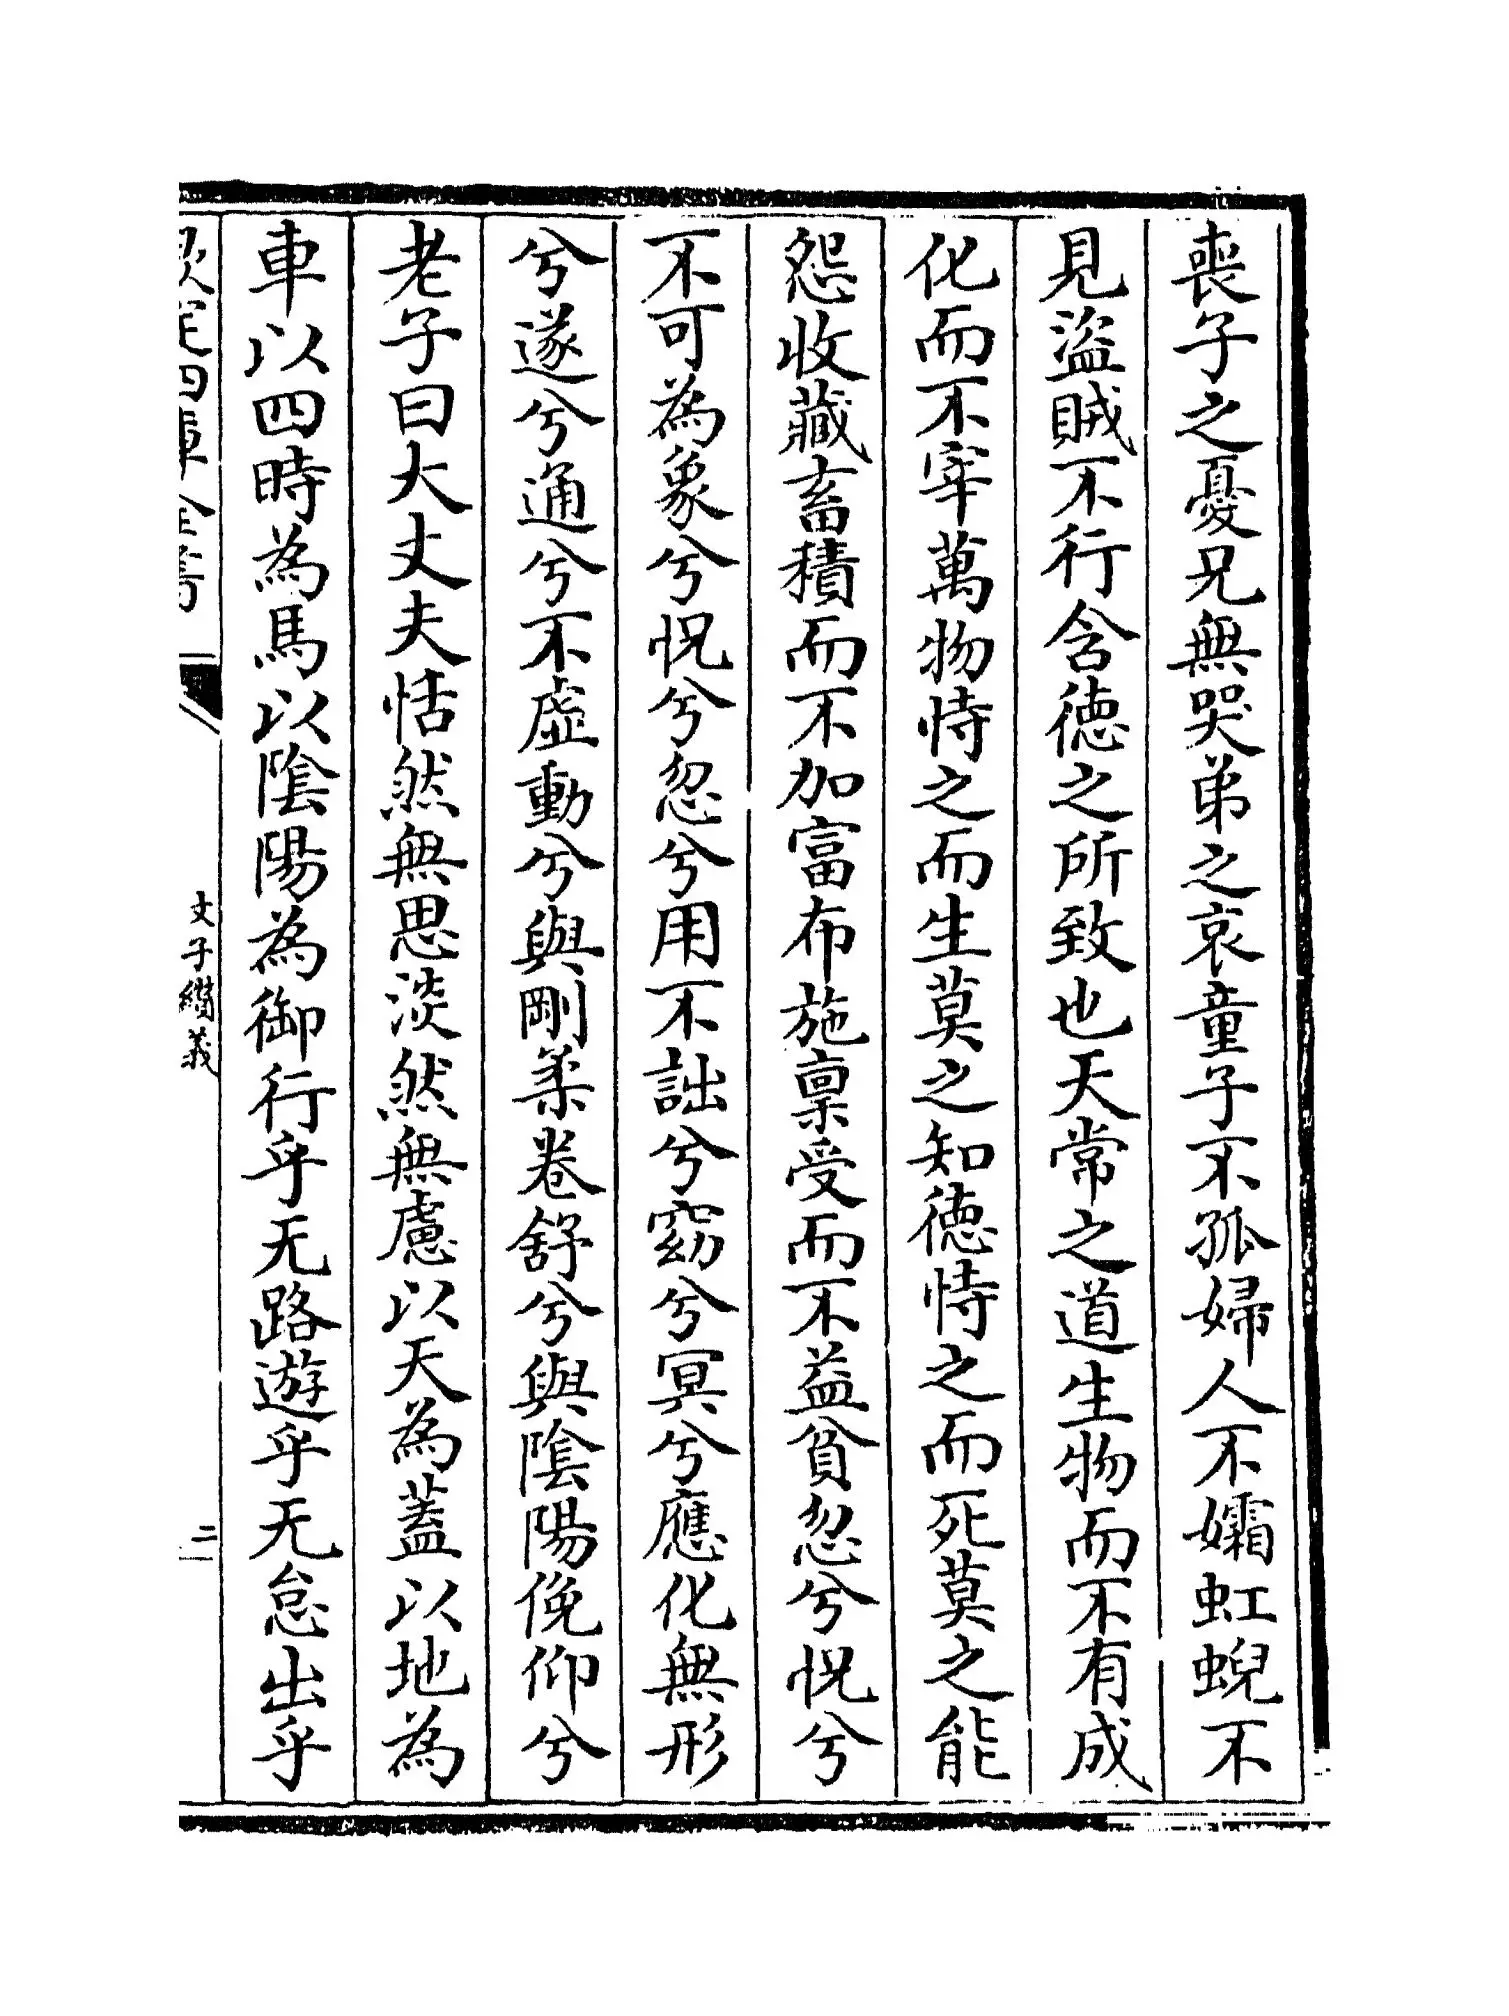 喪子之憂兄無哭弟之哀童子不孤婦人不孀虹蜺不
見盜賊不行含德之所致也天常之道生物而不有成
化而不宰萬物恃之而生莫之知德恃之而死莫之能
怨收藏畜積而不加富布施稟受而不益貧忽兮怳兮
不可為象兮怳兮忽兮用不詘兮窈兮冥兮應化無形
兮遂兮通兮不虛動兮與剛柔卷舒兮與陰陽俛仰兮
老子曰大丈夫恬然無思淡然無慮以天為蓋以地為
車以四時為馬以陰陽為御行乎无路遊乎无怠出乎
欽定四庫全書
文子纘義
二